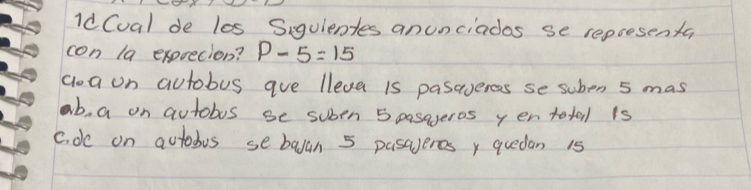 1d Cual de los Siguientes anunciados se representa
con la exprecion? P - 5 = 15
a. a un autobus que lleva 15 pasajeros se suben 5 mas
b. a un autobus se suben 5 pasajeros y en total 15
c. de un autobus se bajan 5 pasajeros y quedan 15